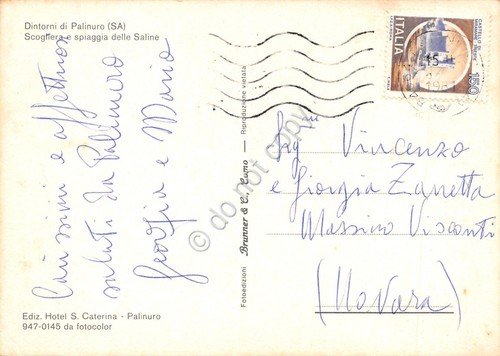 Dintorni di Palinuro (SA)
Scogliera e spiaggia delle Saline
Carissimi e affettuosi
saluti da Palinuro
Giorgia e Mario
Ediz. Hotel S. Caterina - Palinuro
947-0145 da fotocolor
Fotoedizioni Brunner & C. Como - Riproduzione vietata
do not copy
ITALIA
150
Vincenzo
e Giorgia Zanetta
Massino Visconti
(Novara)